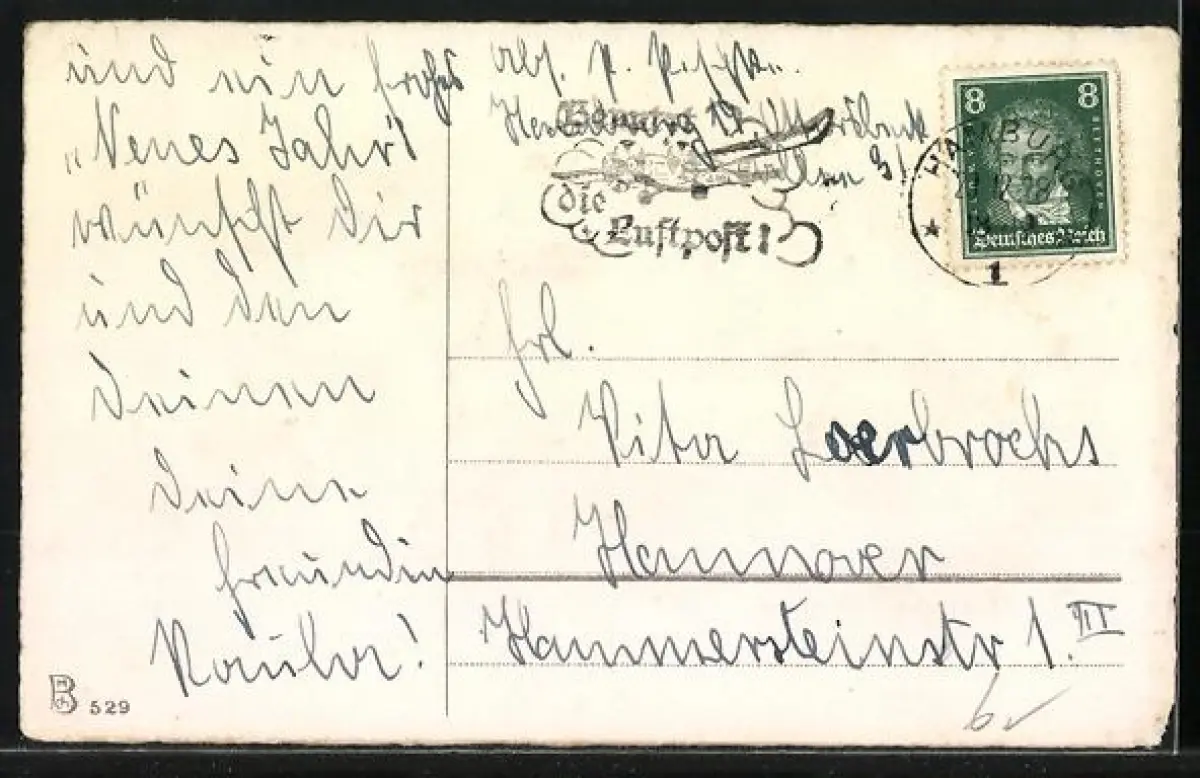 und ein frohes
„Neues Jahr"
wünscht Dir
und den
Deinen
Deine
Freundin
Abs. P.
Hamburg 19
Benutzt
die
Luftpost!
8 8
BEETHOVEN
Deutsches Reich
HAMBURG
1
Frl.
Vita Loerbrochs
Hannover
Hammersteinstr 1. III
529